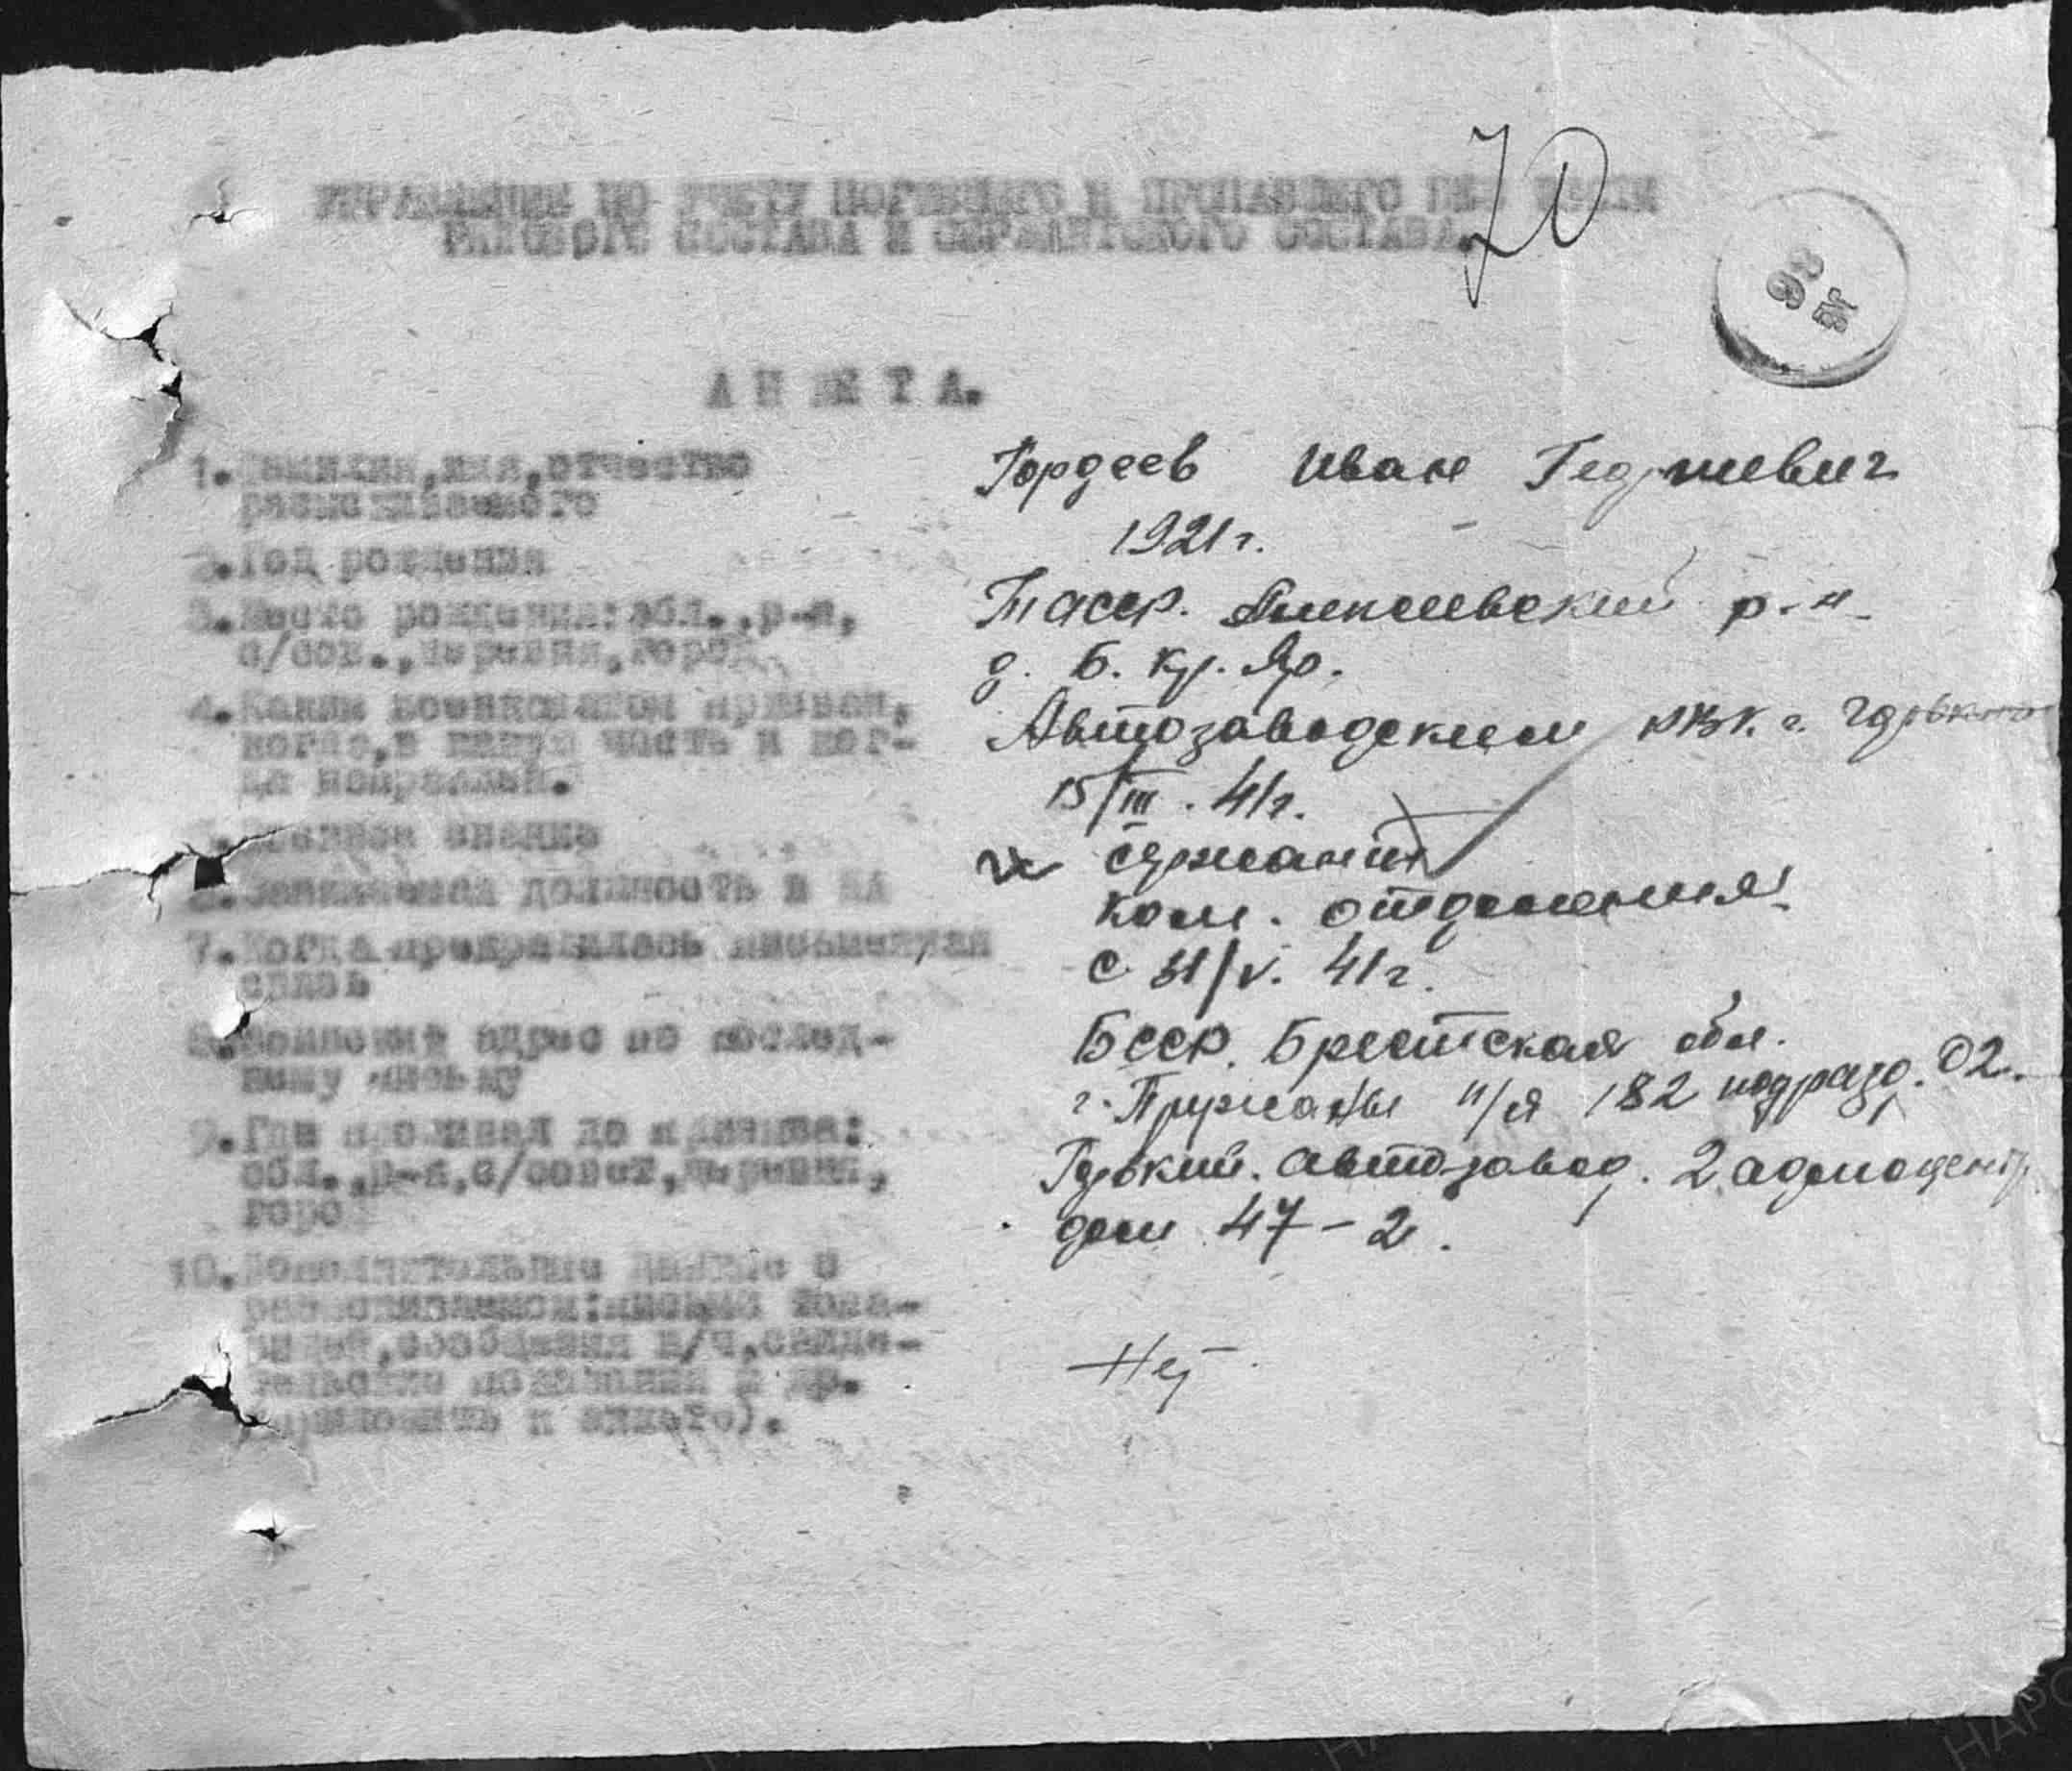 70
УПРАВЛЕНИЕ ПО УЧЕТУ ПОГИБШЕГО И ПРОПАВШЕГО БЕЗ ВЕСТИ
РЯДОВОГО СОСТАВА И СЕРЖАНТСКОГО СОСТАВА.
98
АНКЕТА.
1. Фамилия, имя, отчество
разыскиваемого
Гордеев Иван Георгиевич
2. Год рождения
1921 г.
3. Место рождения: обл., р-н,
с/сов., деревня, город
Тасср. Алексеевский р-н
д. Б. Кр. Яр.
4. Каким военкоматом призван,
когда, в какую часть и ког-
да направлен.
Автозаводским РВК. г. Горького
15/III. 41г.
5. Военное звание
сержант
6. Занимаемая должность в КА
ком. отделения
7. Когда прекратилась письменная
связь
с 31/V. 41г.
8. Домашний адрес по послед-
нему письму
БССР. Брестская обл.
г. Пружаны п/я 182 подразд. 02.
9. Где проживал до призыва:
обл., р-н, с/совет, деревня,
город
Горький. Автозавод. 2
дом 47-2.
10. Дополнительные данные о
разыскиваемом: письма това-
рищей, сообщения в/ч, свиде-
тельские показания и др.
(приложить к анкете).
Нет